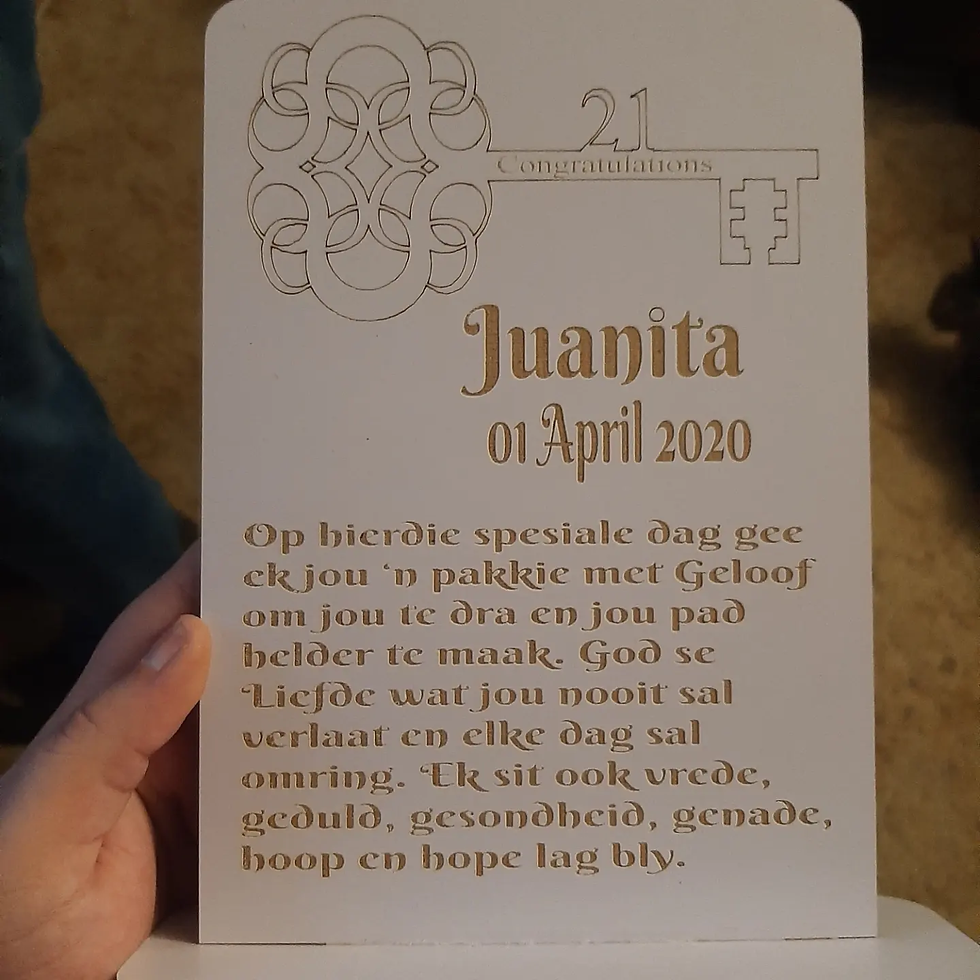 21
Congratulations
Juanita
01 April 2020
Op hierdie spesiale dag gee
ek jou 'n pakkie met Geloof
om jou te dra en jou pad
helder te maak. God se
Liefde wat jou nooit sal
verlaat en elke dag sal
omring. Ek sit ook vrede,
geduld, gesondheid, genade,
hoop en hope lag bly.